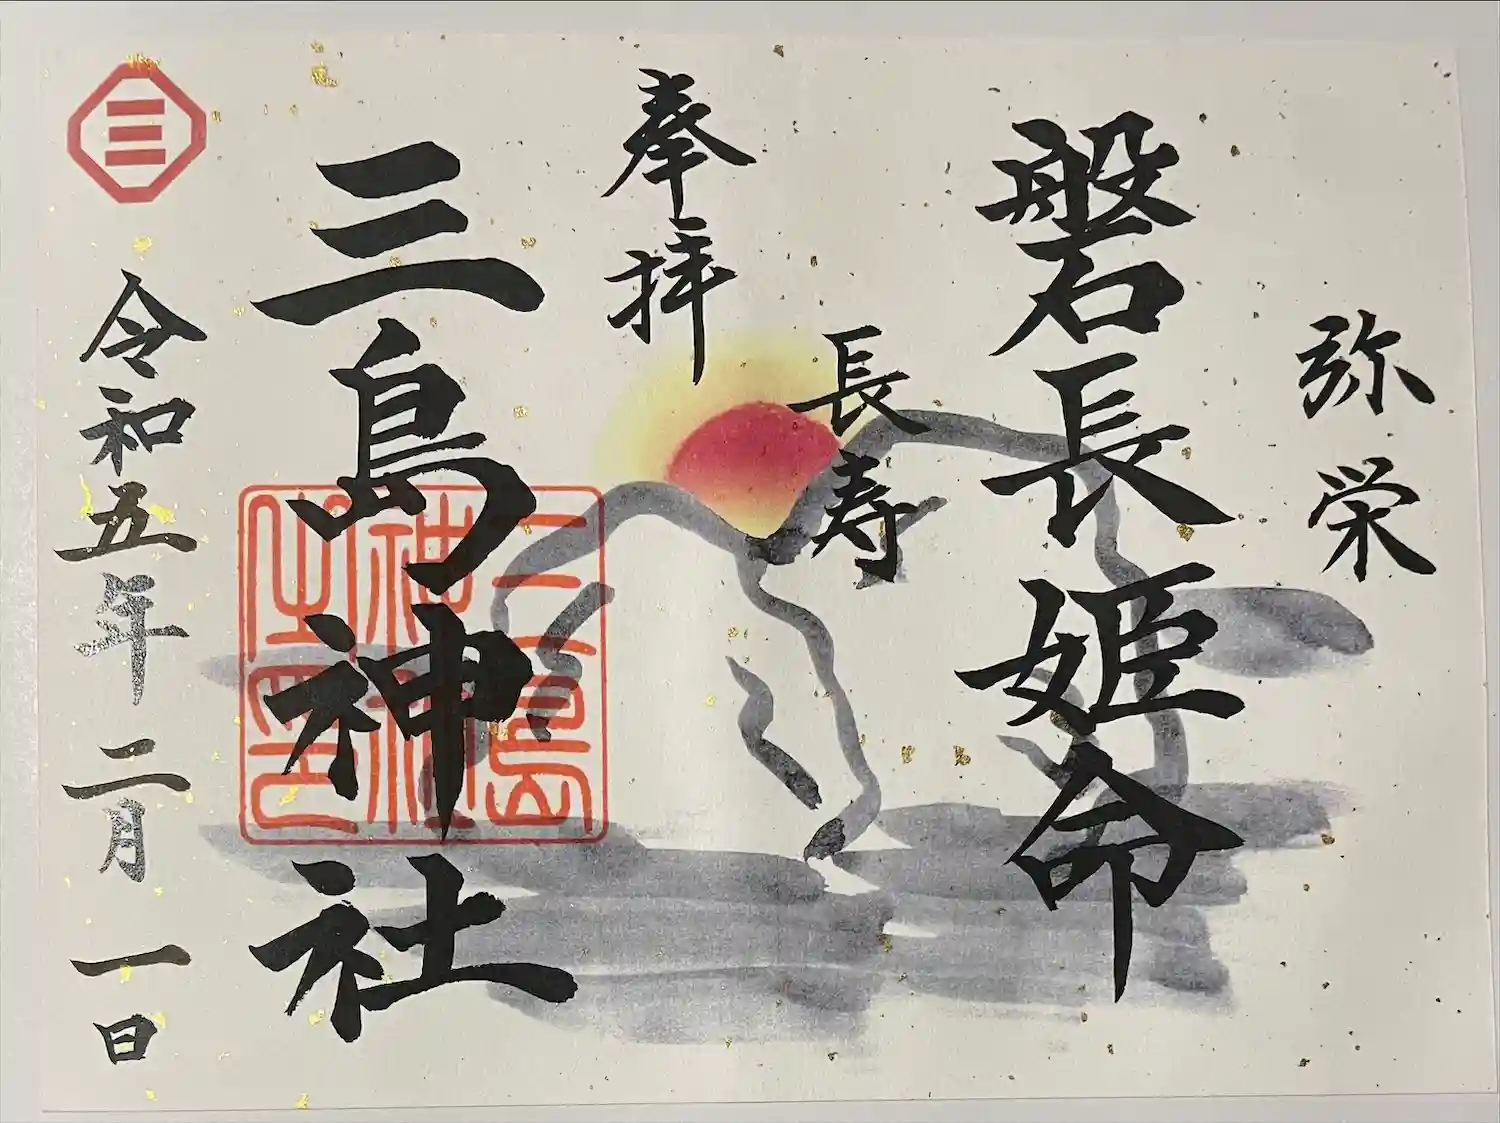 弥栄
磐長姫命
長寿
奉拝
三島神社
三島神社之印
三
令和五年二月一日